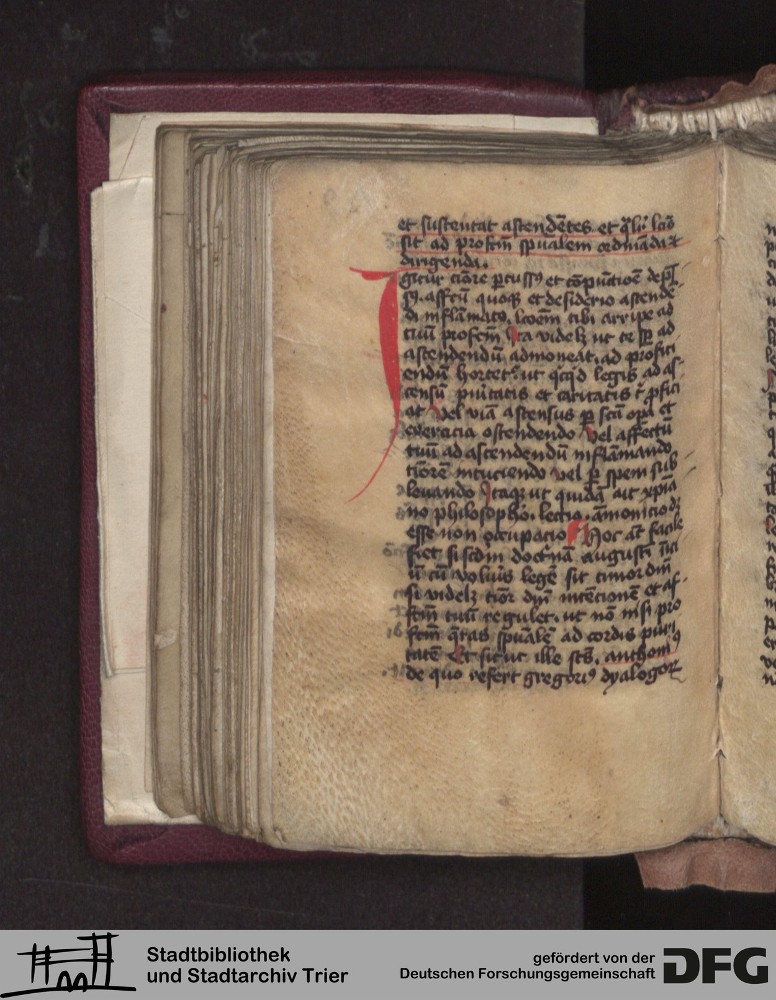 et sustentat ascendētes et q̄lit̄ lcō
sit ad profm̄ spūalem ordināda et
dirigenda.
Igitur timore ꝑcussꝰ et cōpunctiōe
affctū quoqꝫ et desiderio ascendē
di inflāmatꝰ. lcōem tibi arripe ad
tuū profm̄ Ita videlꝫ ut te sꝑ ad
ascendendū admoneat. ad profici
endū hortetꝰ ut qͥcqͥd legis ad as
censū puritatis et caritatis
at vel viā ascensus ꝑ scā oꝑa et
exercicia ostendendo vel affectū
tuū ad ascendendū inflāmando
tiōrē incuciendo vel ꝑ spem sub
leuando Itaqꝫ ut quidā ait xp̄ia
no philosopho. lectio. āmonicio dꝫ
esse non occupacio Hoc āt facile
fiet si scdm doctͥnā augusti
cū voluis̄ legē sit timor dn̄i
si videlꝫ tiōr dn̄i intēcionē et af
fctm̄ tuū regulet. ut nō nisi pro
fctm̄ q̄ras spūalē ad cordis puri
tatē Et sic ut ille sc̄s. anthoniꝰ
de quo refert gregoriꝰ dyalogoꝝ
Stadtbibliothek
und Stadtarchiv Trier
gefördert von der
Deutschen Forschungsgemeinschaft
DFG